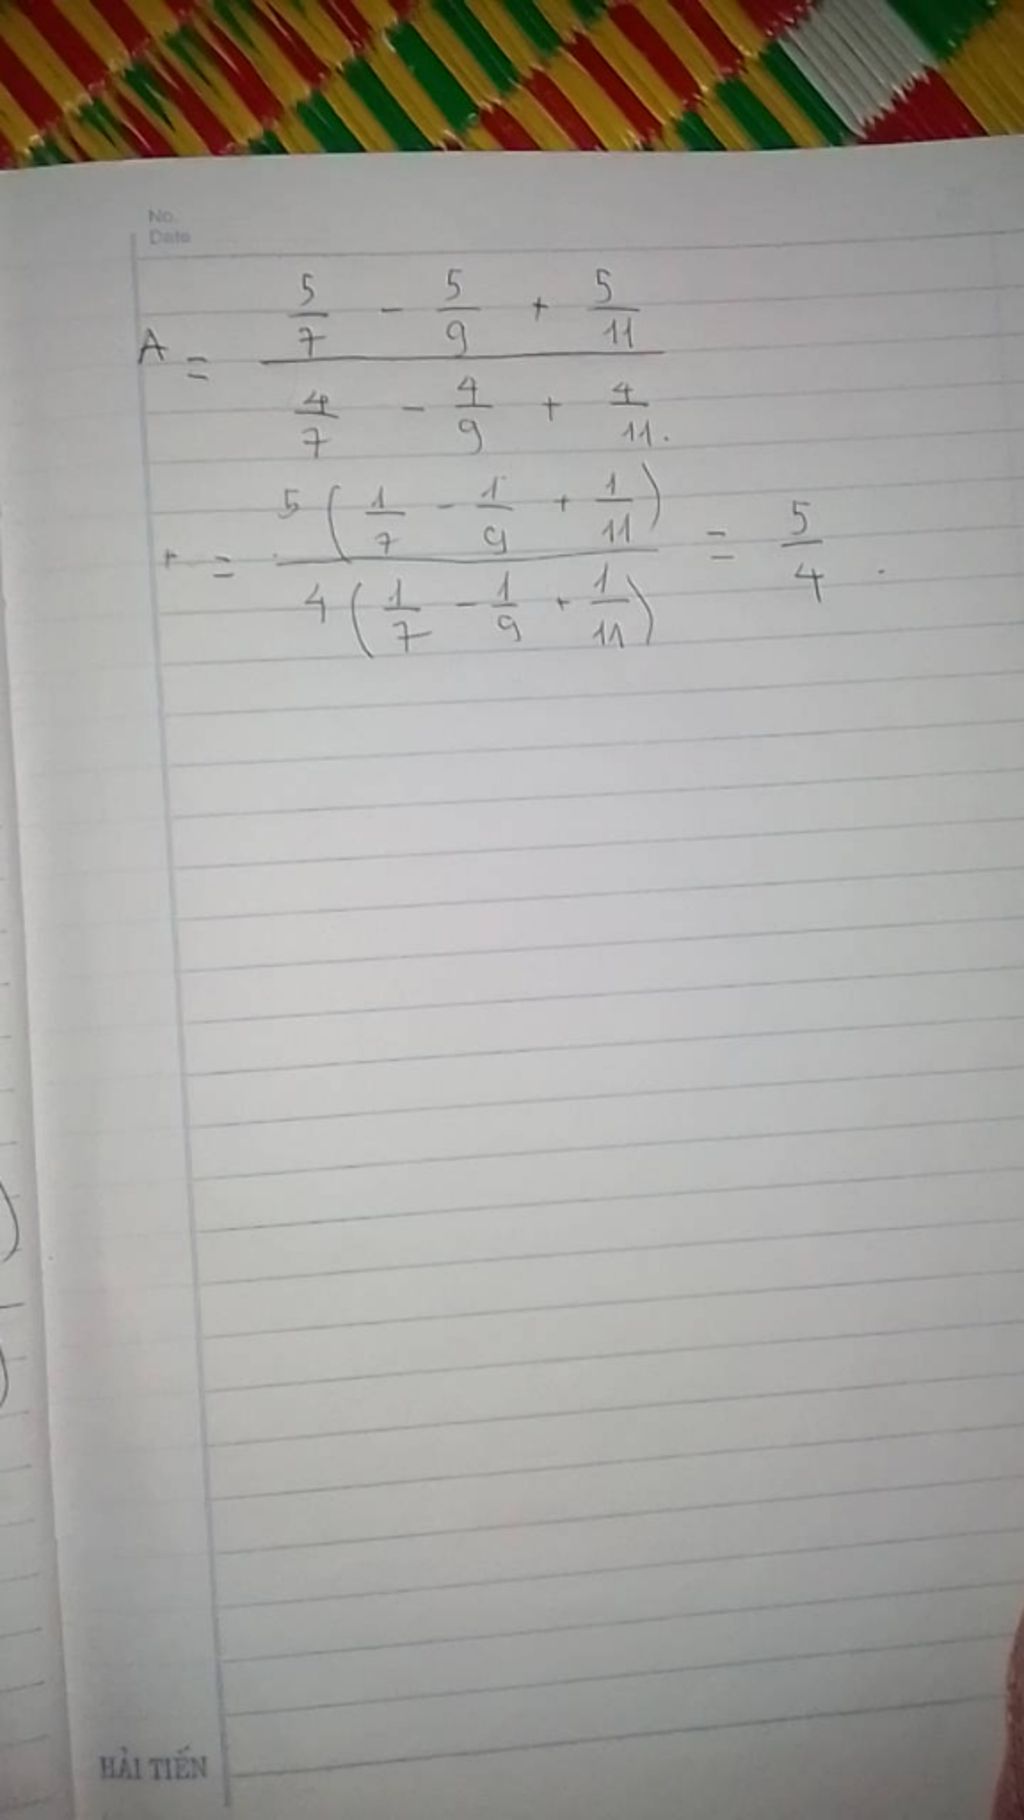 No.
Date
A = (5/7 - 5/9 + 5/11) / (4/7 - 4/9 + 4/11).
= 5(1/7 - 1/9 + 1/11) / 4(1/7 - 1/9 + 1/11) = 5/4.
HẢI TIẾN